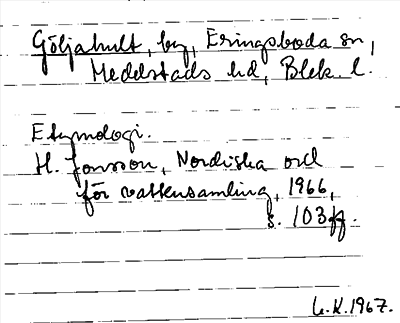 Göljahult, by, Eringsboda sn,
Medelstads hd, Blek. l.
Etymologi.
H. Jonsson, Nordiska ord
för vattensamling, 1966,
s. 103 ff.
L.K. 1967.